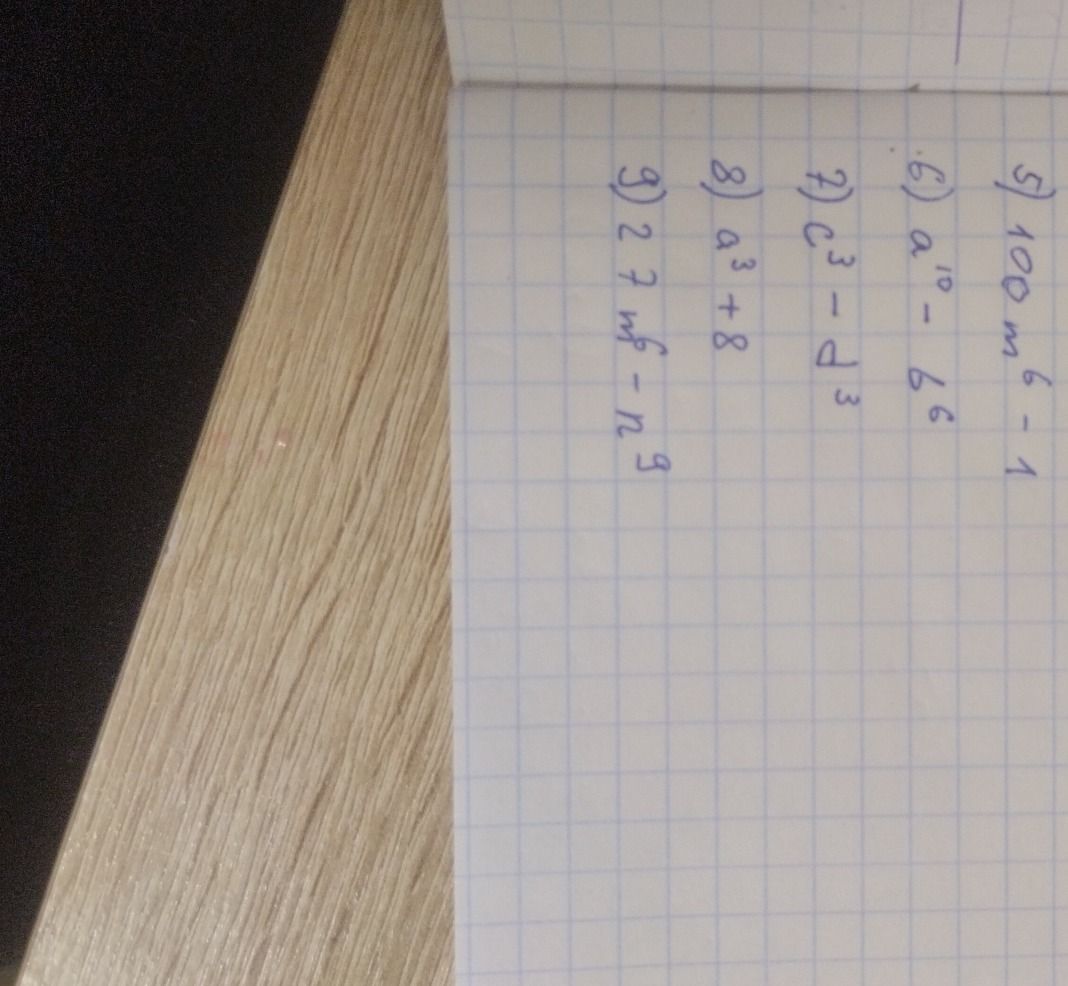 5) 100 m⁶ - 1
6) a¹⁰ - b⁶
7) c³ - d³
8) a³ + 8
9) 27 m⁶ - n⁹